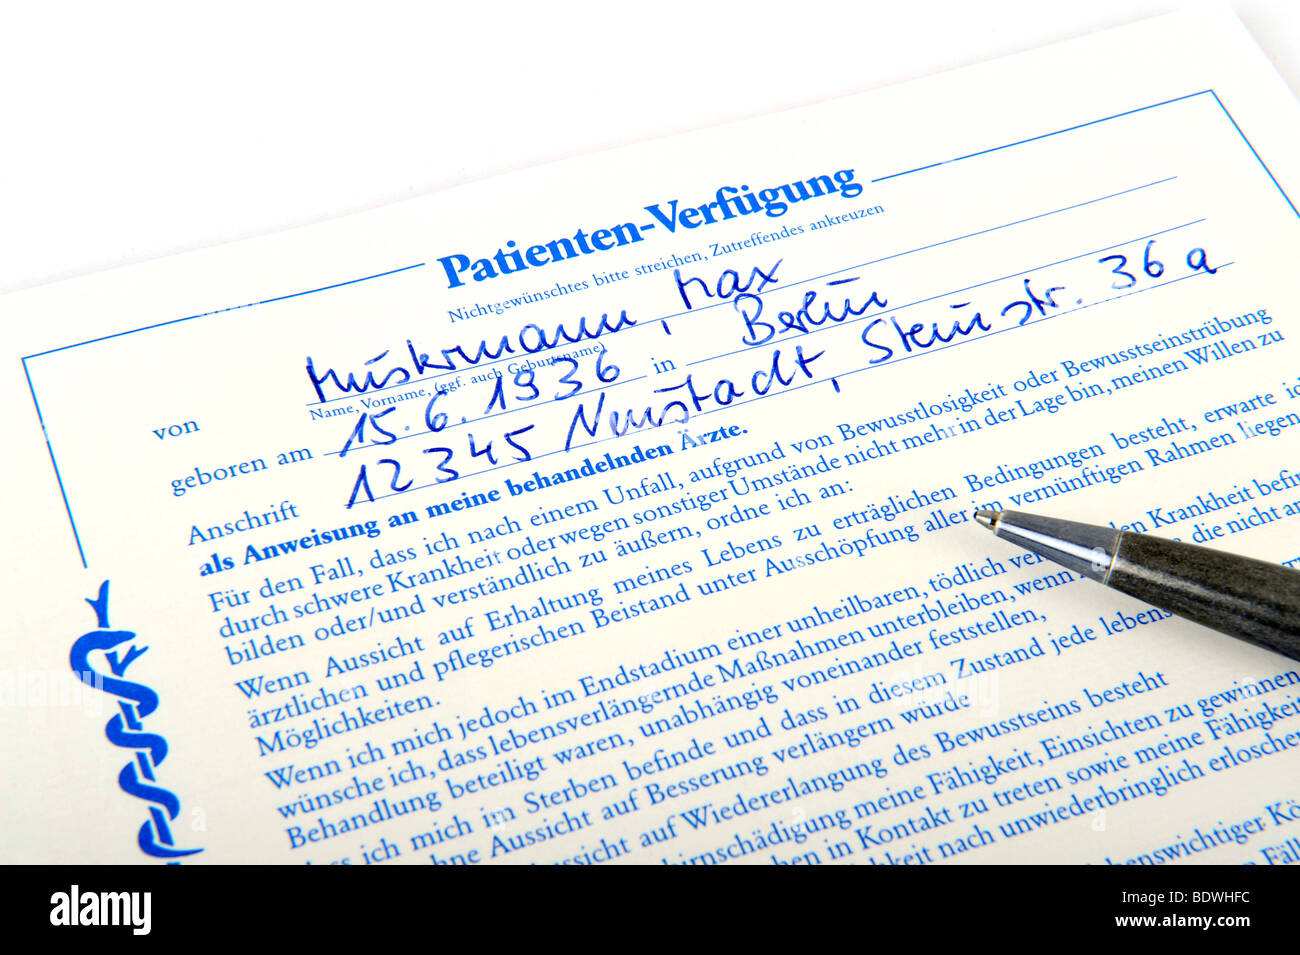 Patienten-Verfügung
Nichtgewünschtes bitte streichen, Zutreffendes ankreuzen
von Mustermann, Max
Name, Vorname, (ggf. auch Geburtsname)
geboren am 15.6.1936 in Berlin
Anschrift 12345 Neustadt, Steinstr. 36 a
als Anweisung an meine behandelnden Ärzte.
Für den Fall, dass ich nach einem Unfall, aufgrund von Bewusstlosigkeit oder Bewusstseinstrübung
durch schwere Krankheit oder wegen sonstiger Umstände nicht mehr in der Lage bin, meinen Willen zu
bilden oder/und verständlich zu äußern, ordne ich an:
Wenn Aussicht auf Erhaltung meines Lebens zu erträglichen Bedingungen besteht, erwarte
ärztlichen und pflegerischen Beistand unter Ausschöpfung aller im vernünftigen Rahmen liegen
Möglichkeiten.
Wenn ich mich jedoch im Endstadium einer unheilbaren, tödlich Krankheit
wünsche ich, dass lebensverlängernde Maßnahmen unterbleiben, wenn die nicht an
Behandlung beteiligt waren, unabhängig voneinander feststellen,
ich mich im Sterben befinde und dass in diesem Zustand jede lebens
ne Aussicht auf Besserung verlängern würde
ssicht auf Wiedererlangung des Bewusstseins besteht
hirnschädigung meine Fähigkeit, Einsichten zu gewinnen
en in Kontakt zu treten sowie meine Fähigkeit
keit nach unwiederbringlich erloschen
benswichtiger Kö
Fäll
alamy
Image ID: BDWHFC
www.alamy.com